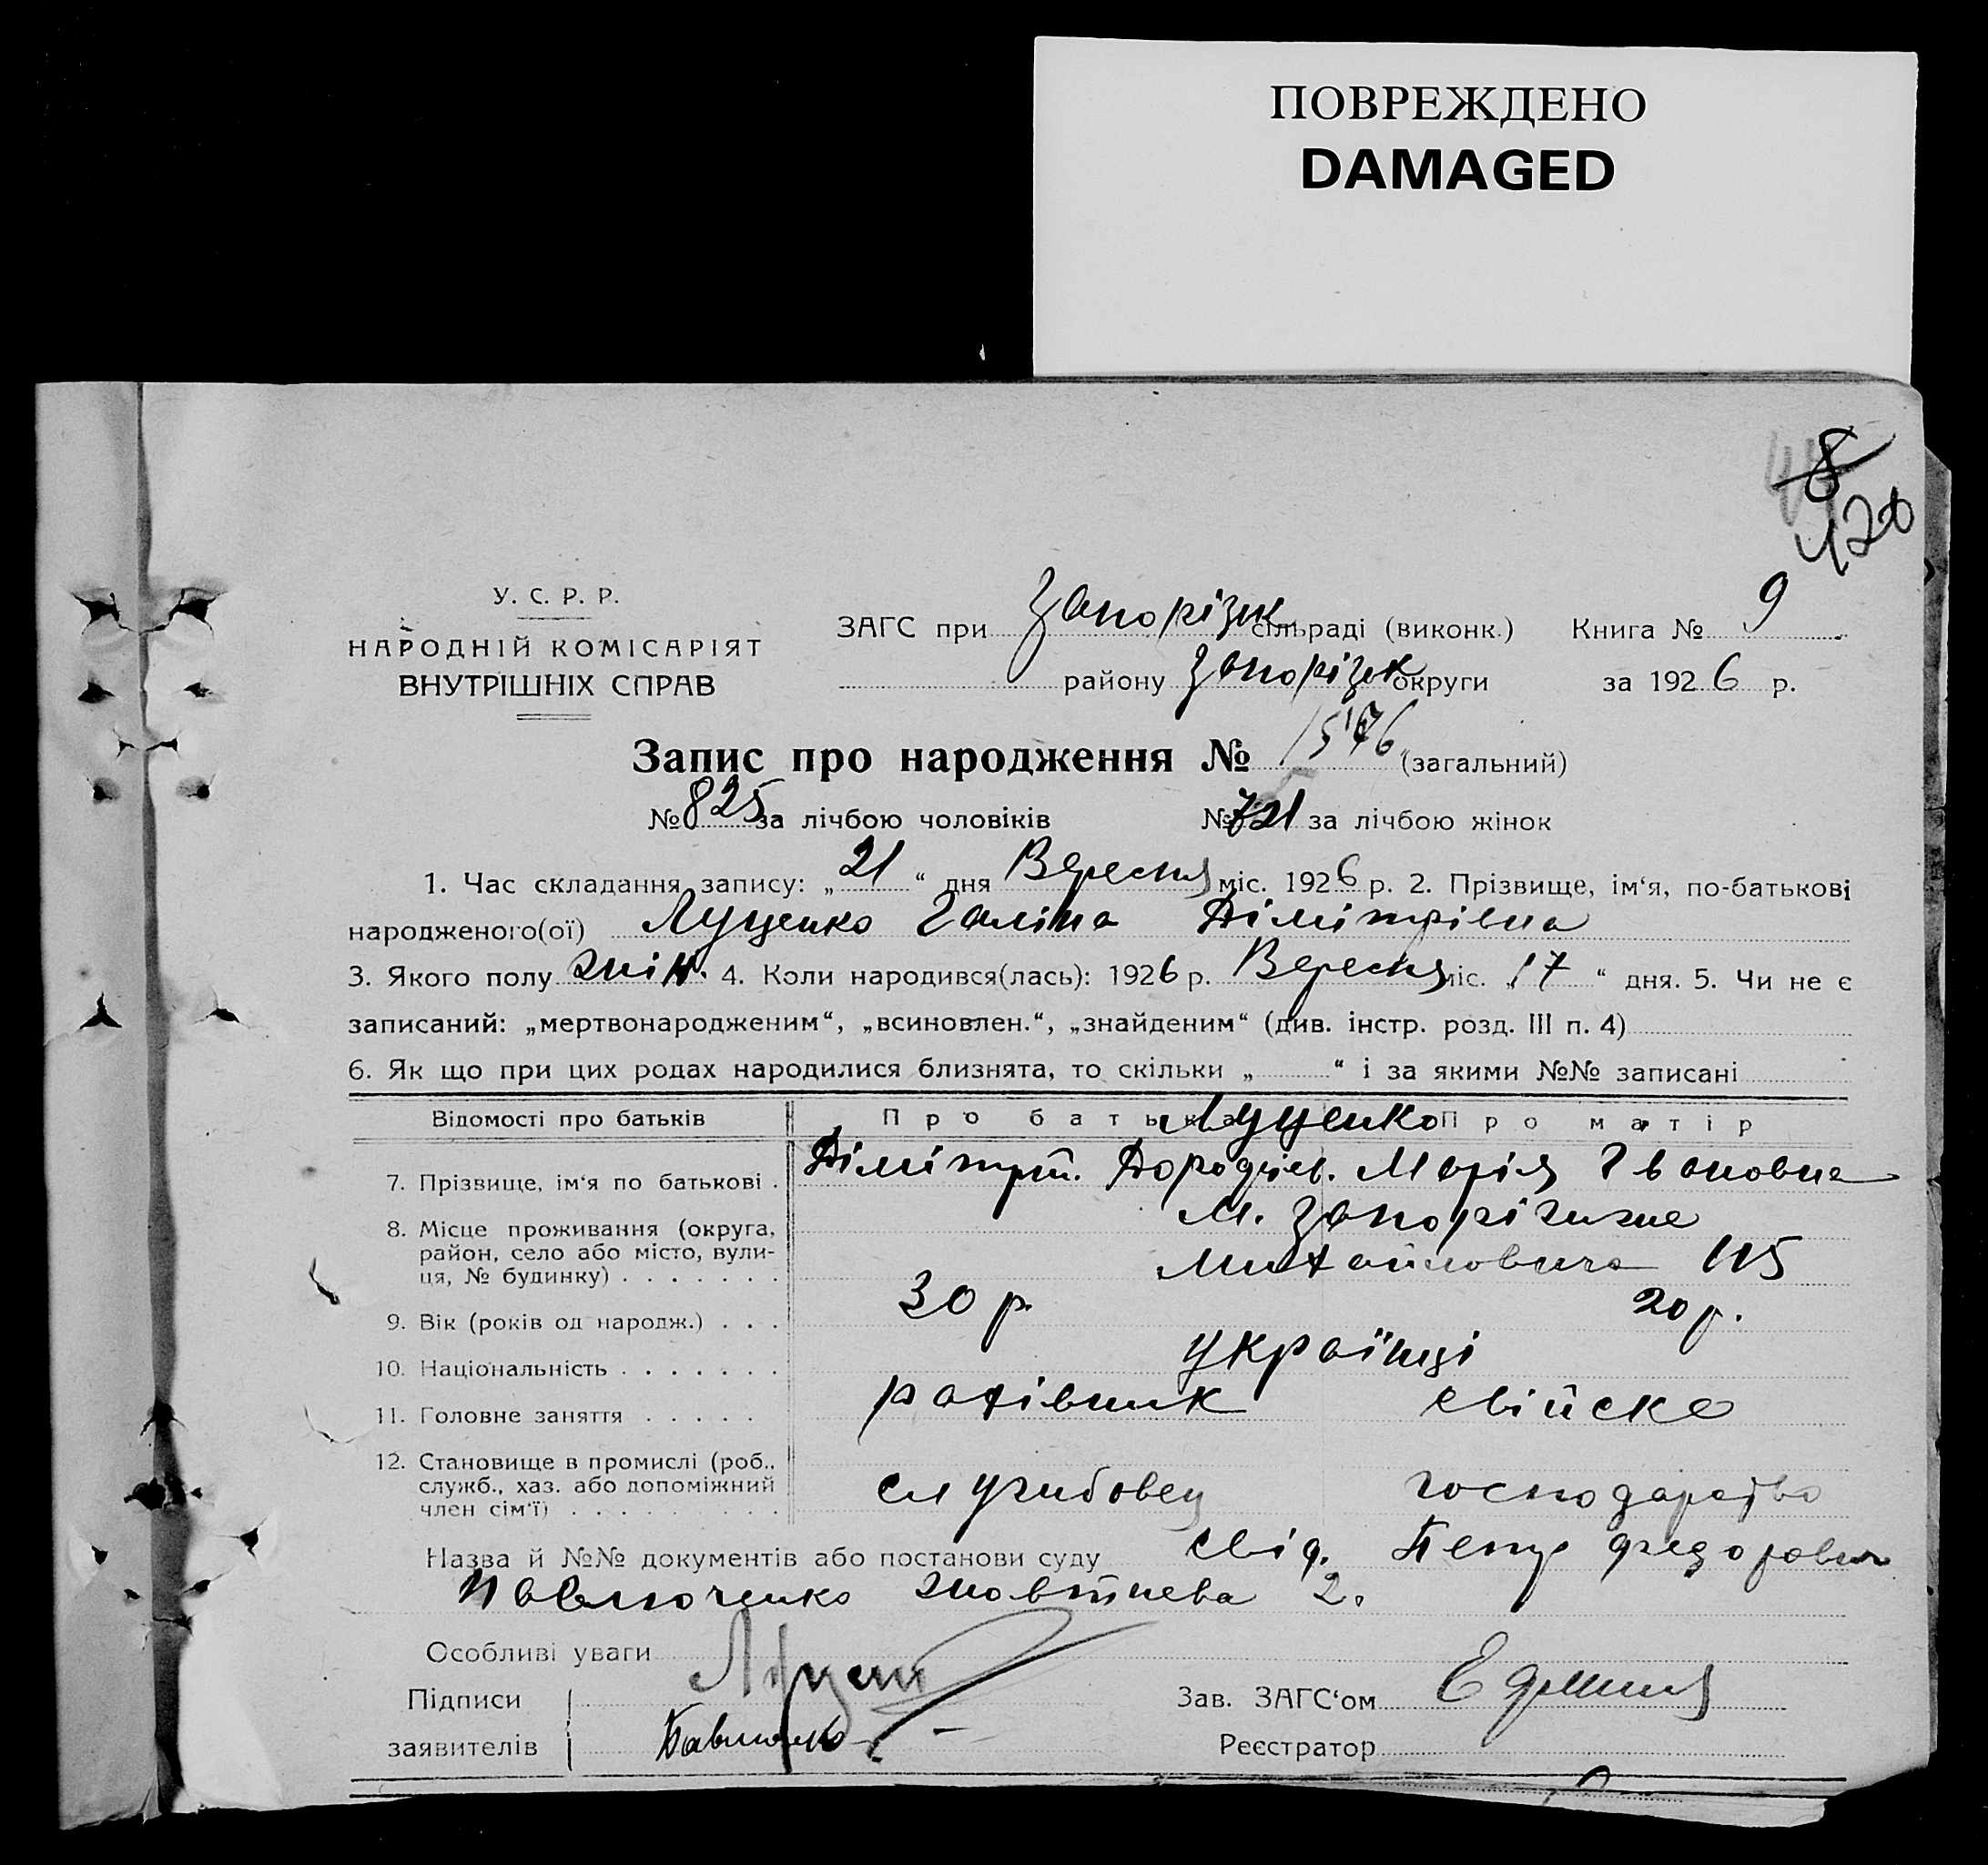 ПОВРЕЖДЕНО
DAMAGED
8
420
У. С. Р. Р.
НАРОДНІЙ КОМІСАРІЯТ
ВНУТРІШНІХ СПРАВ
ЗАГС при Запорізьк сільраді (виконк.) Книга № 9
району Запорізьк округи за 1926 р.
Запис про народження № 1546 (загальний)
№ 825 за лічбою чоловіків № 721 за лічбою жінок
1. Час складання запису: „21“ дня Вересня міс. 1926 р. 2. Прізвище, ім‘я, по-батькові
народженого(ої) Луценко Галіна Дімітрівна
3. Якого полу жін. 4. Коли народився(лась): 1926 р. Вересня міс. „17“ дня. 5. Чи не є
записаний: „мертвонародженим“, „всиновлен.“, „знайденим“ (див. інстр. розд. III п. 4)
6. Як що при цих родах народилися близнята, то скільки „ “ і за якими №№ записані
Відомості про батьків Про батька Луценко Про матір
7. Прізвище, ім‘я по батькові . Дімітрій. Марія Івановна
8. Місце проживання (округа, м. Запоріжже
район, село або місто, вули-
ця, № будинку) . . . . . . . 115
9. Вік (років од народж.) . . . 30 р. 20 р.
10. Національність . . . . . . . українці
11. Головне заняття . . . . . рахівник свійске
12. Становище в промислі (роб.,
служб., хаз. або допоміжний службовец господарство
член сім‘ї) . . . . . . . . .
Назва й №№ документів або постанови суду свід. Федорович
Павлюченко Жовтнева 2.
Особливі уваги
Підписи Зав. ЗАГС‘ом
заявителів Реєстратор